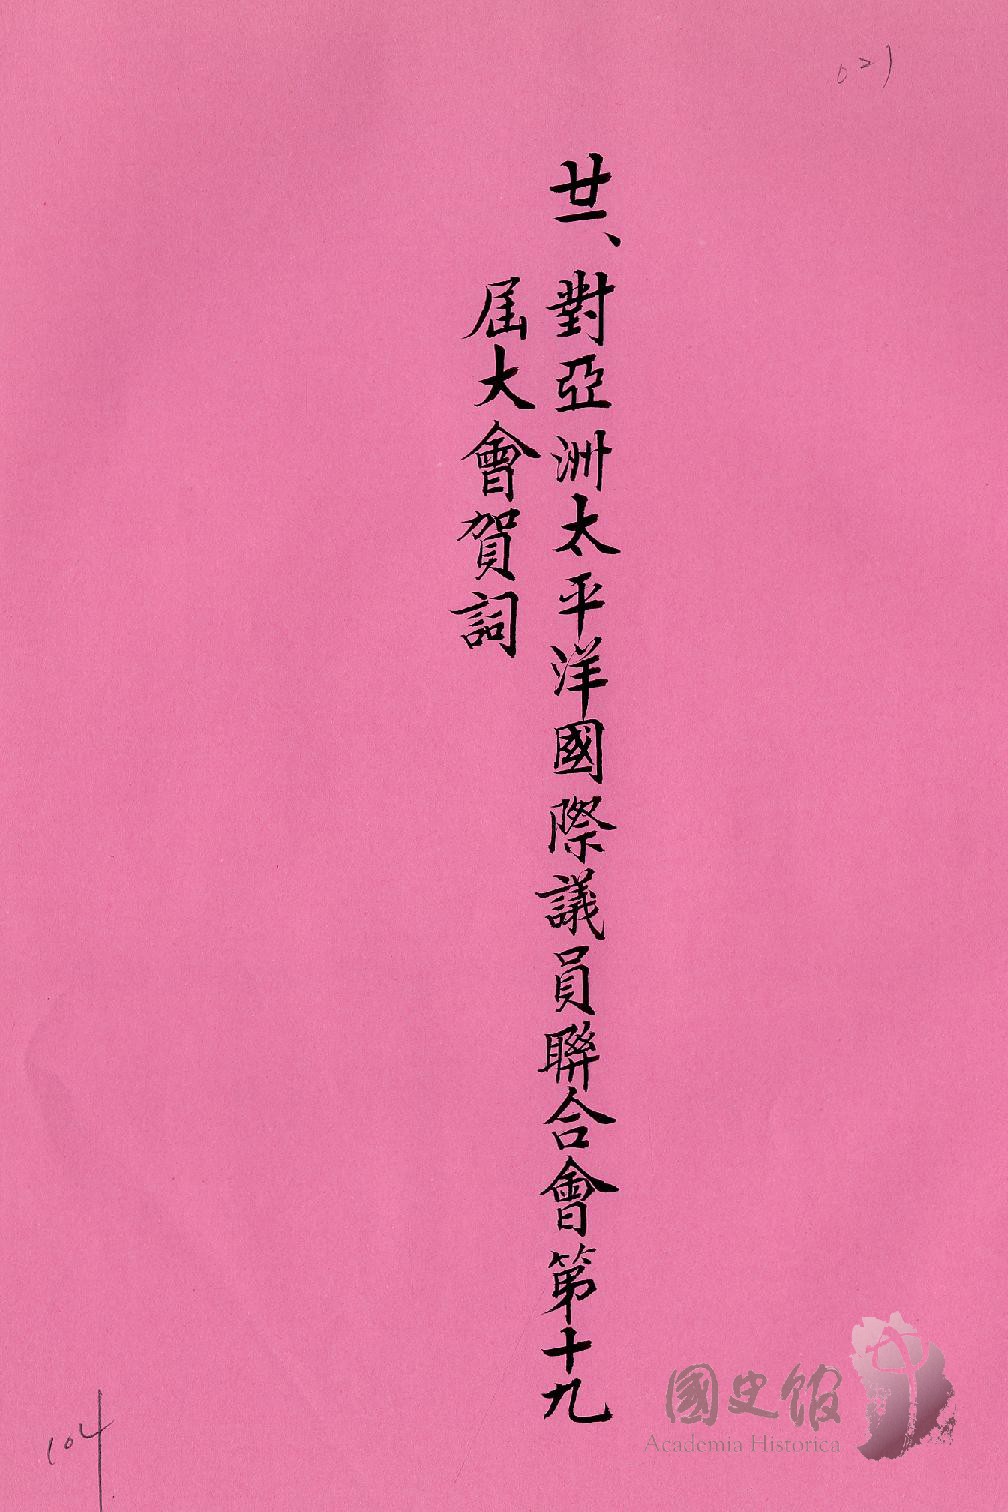 021
廿一、對亞洲太平洋國際議員聯合會第十九
屆大會賀詞
104
國史館
Academia Historica